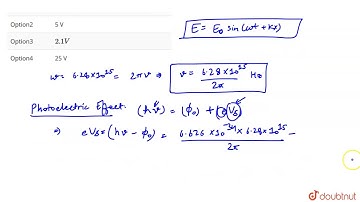 Option2 5 V
Option3 2.1V
Option4 25 V
E = E₀ sin(ωt + kx)
ω = 6.28 × 10¹⁵ = 2πν ⇒ ν = 6.28 × 10¹⁵ / 2π Hz
Photoelectric Effect: (hν) = (ϕ₀) + eVₛ
⇒ eVₛ = (hν − ϕ₀) = 6.626 × 10⁻³⁴ × 6.28 × 10¹⁵ / 2π −
doubtnut